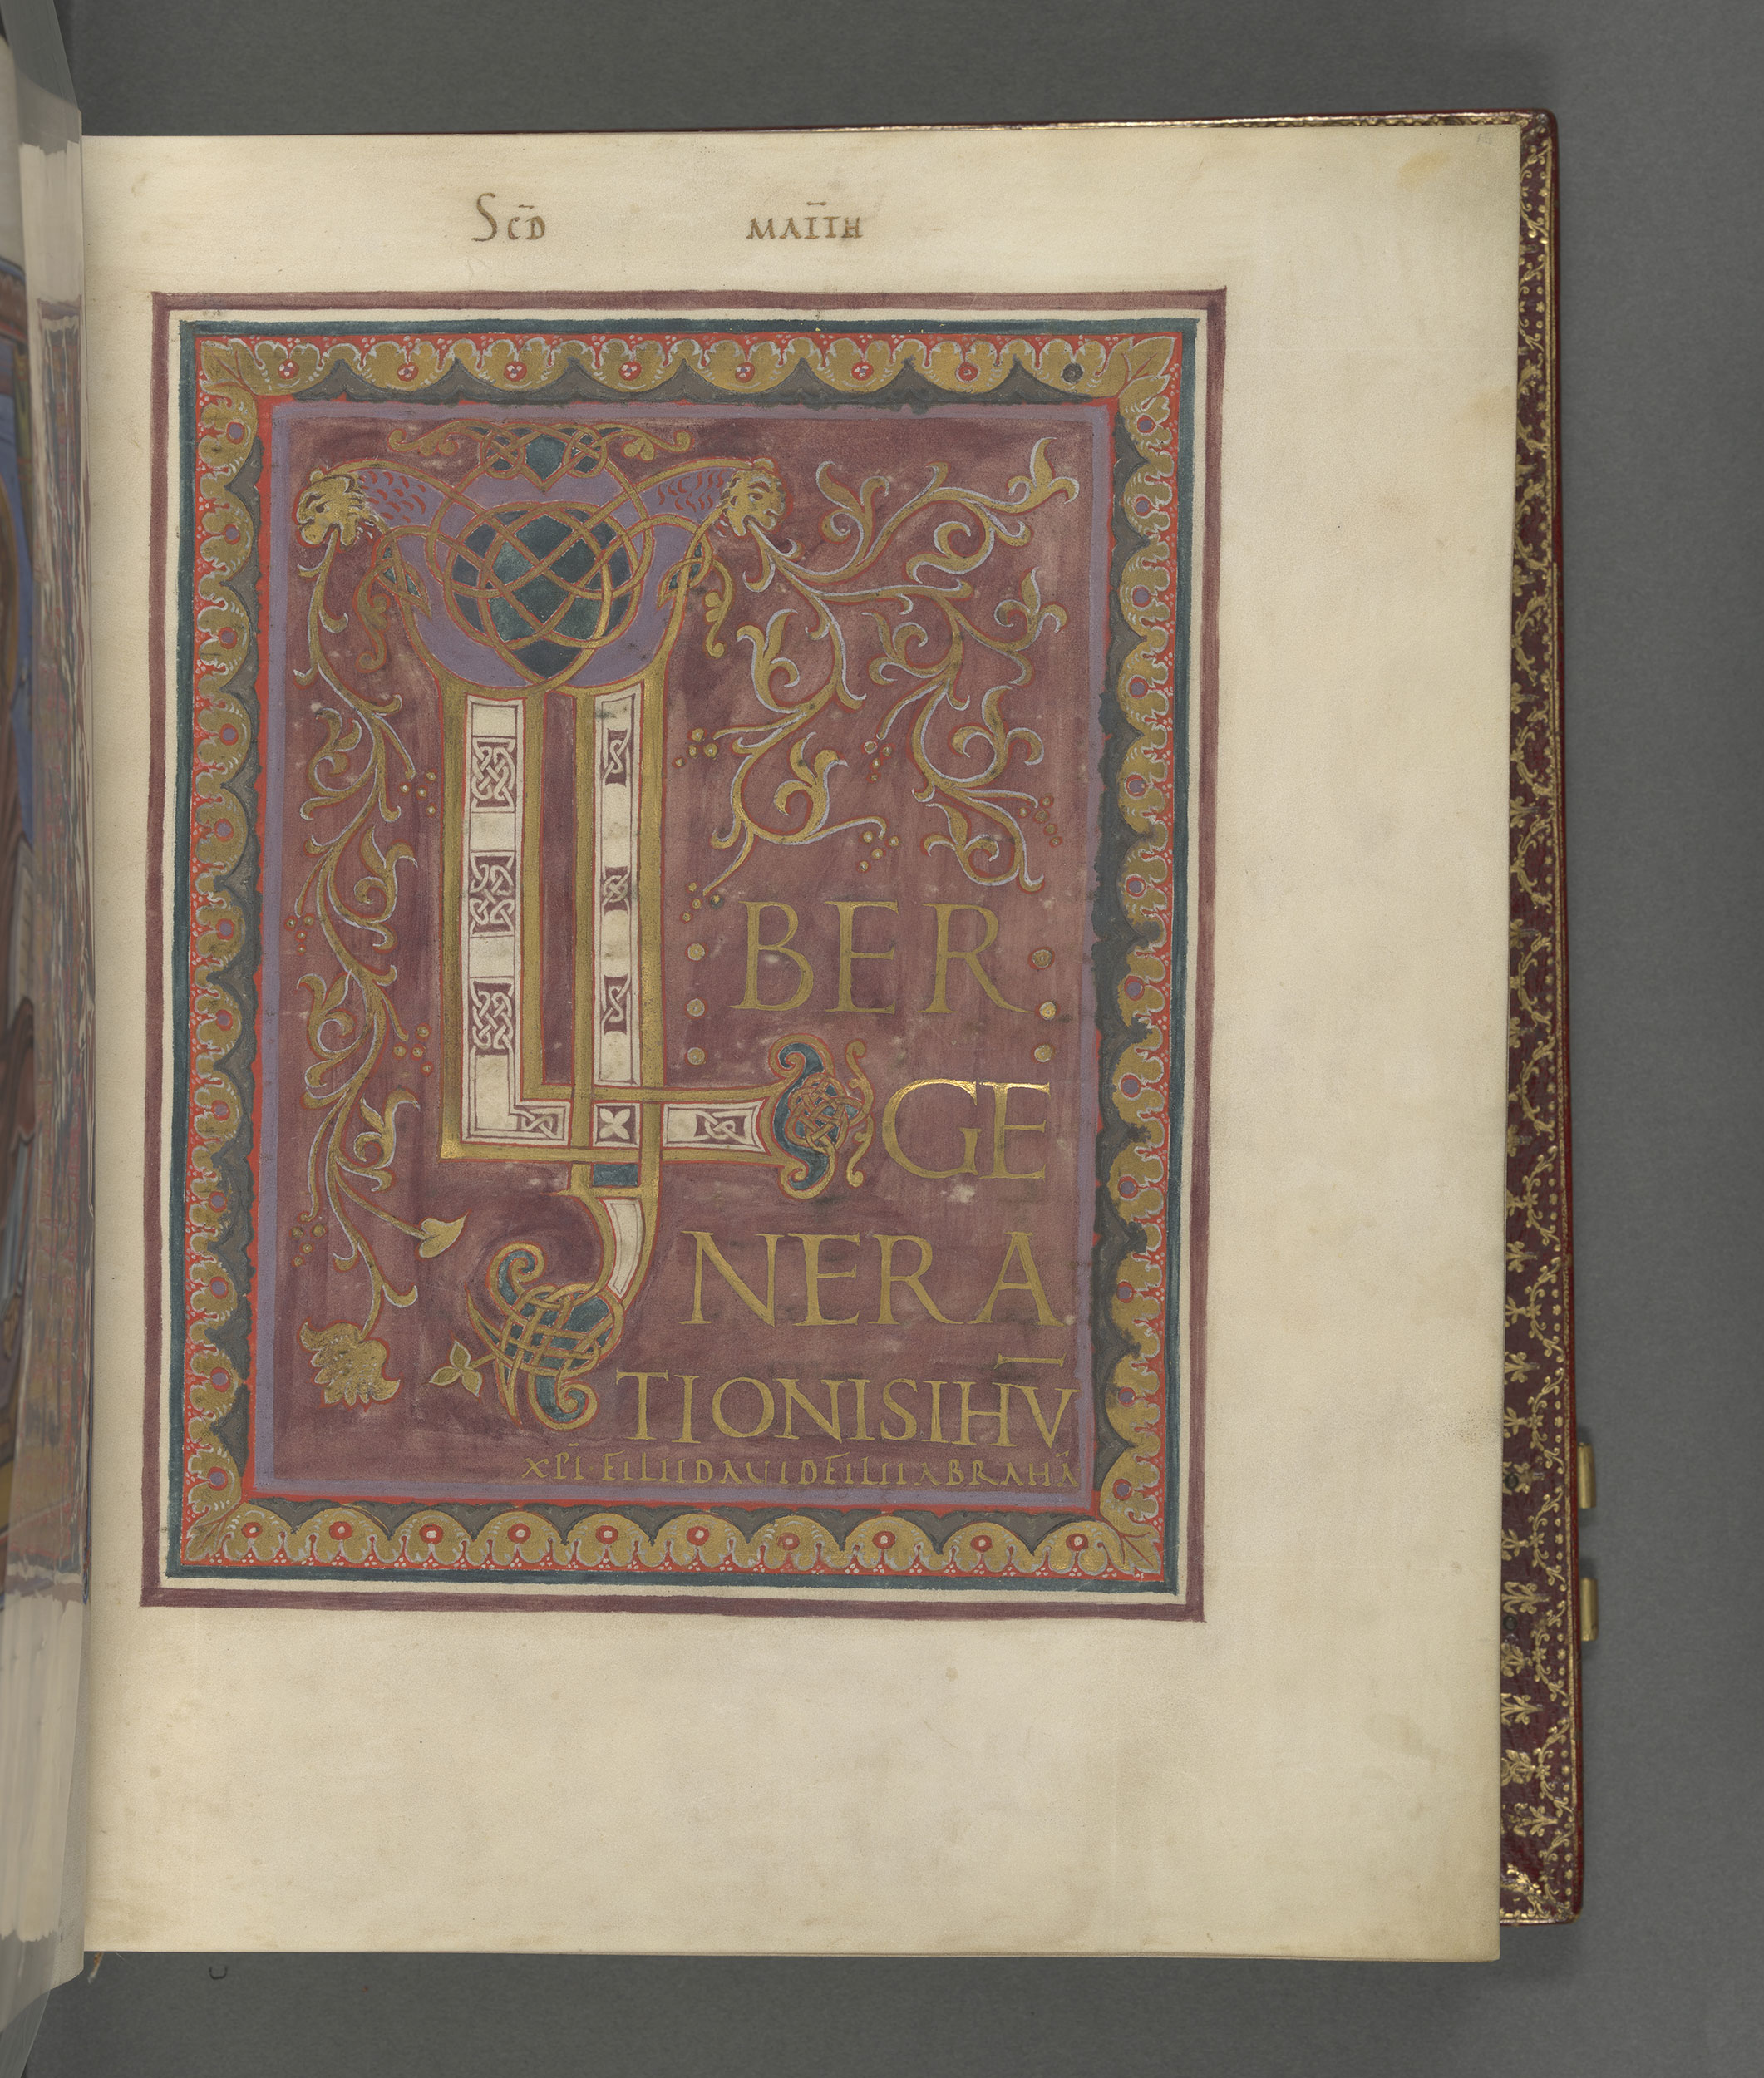 SCD̄ MATT̄H
LIBER
GE
NERA
TIONIS IHV̄
XP̄I FILII DAVID FILII ABRAHĀ